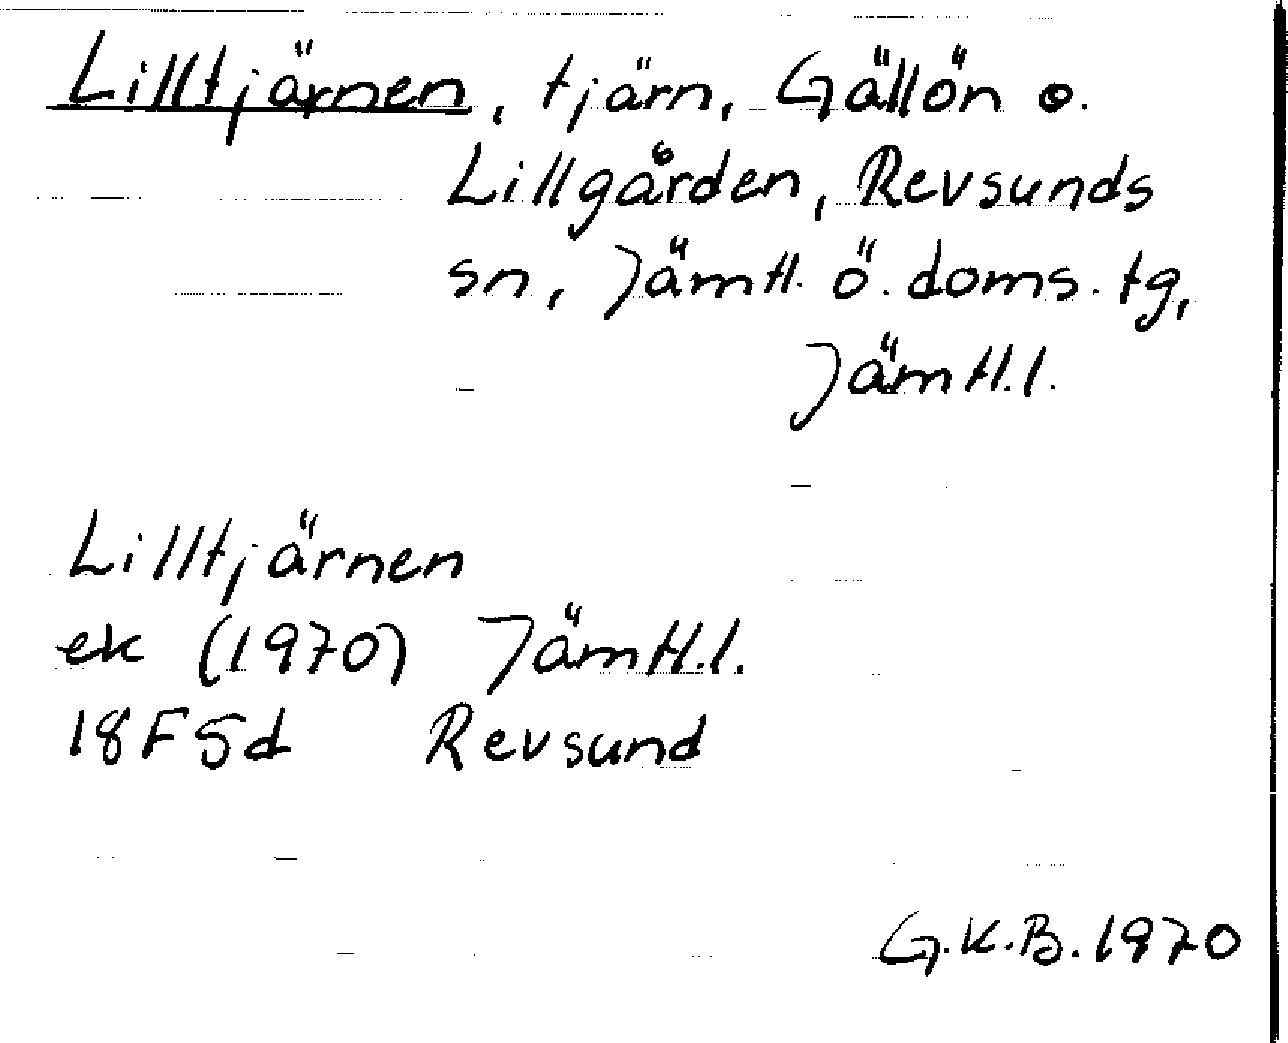 Lilltjärnen, tjärn, Gällön o.
Lillgården, Revsunds
sn, Jämtl. ö. doms. tg,
Jämtl.l.
Lilltjärnen
ek (1970) Jämtl.l.
18F5d Revsund
G.K.B.1970